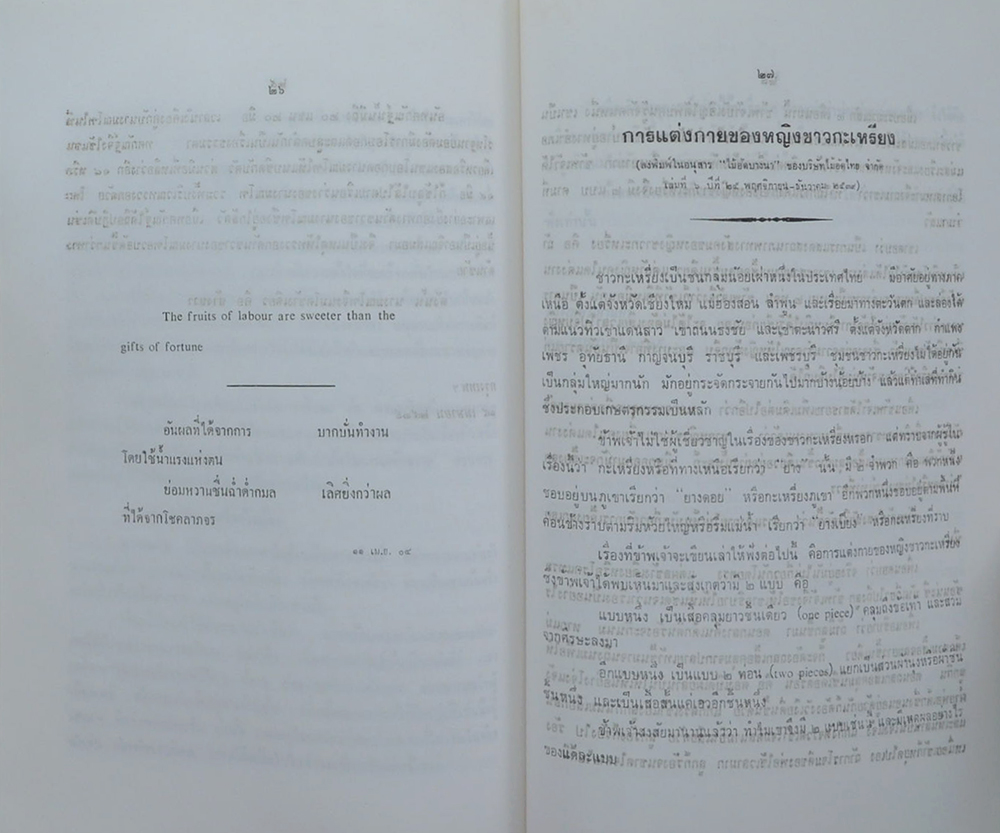 ๒๖
The fruits of labour are sweeter than the
gifts of fortune
อันผลที่ได้จากการ บากบั่นทำงาน
โดยใช้น้ำแรงแห่งตน
ย่อมหวานชื่นฉ่ำดำกมล เลิศยิ่งกว่าผล
ที่ได้จากโชคลาภจร
๑๑ เม.ย. ๐๔
๒๗
การแต่งกายของหญิงชาวกะเหรี่ยง
(ลงพิมพ์ในอนุสาร "ไม้อัดบางนา" ของบริษัทไม้อัดไทย จำกัด
เล่มที่ ๖ ปีที่ ๒๔ พฤศจิกายน-ธันวาคม ๒๕๓๗)
ชาวกะเหรี่ยงเป็นชนกลุ่มน้อยเผ่าหนึ่งในประเทศไทย มีอาศัยอยู่ทางภาค
เหนือ ตั้งแต่จังหวัดเชียงใหม่ แม่ฮ่องสอน ลำพูน และเรื่อยมาทางตะวันตก และล่องใต้
ตามแนวทิวเขาแดนลาว เขาถนนธงชัย และเขาตะนาวศรี ตั้งแต่จังหวัดตาก กำแพง
เพชร อุทัยธานี กาญจนบุรี ราชบุรี และเพชรบุรี ชุมชนชาวกะเหรี่ยงไม่ได้อยู่กัน
เป็นกลุ่มใหญ่มากนัก มักอยู่กระจัดกระจายกันไปมากบ้างน้อยบ้าง แล้วแต่ทำเลที่ทำกิน
ซึ่งประกอบเกษตรกรรมเป็นหลัก
ข้าพเจ้าไม่ใช่ผู้เชี่ยวชาญในเรื่องของชาวกะเหรี่ยงหรอก แต่ทราบจากผู้รู้ใน
เรื่องนี้ว่า กะเหรี่ยงหรือที่ทางเหนือเรียกว่า "ยาง" นั้น มี ๒ จำพวก คือ พวกหนึ่ง
ชอบอยู่บนภูเขาเรียกว่า "ยางดอย" หรือกะเหรี่ยงภูเขา อีกพวกหนึ่งชอบอยู่ตามพื้นที่
ค่อนข้างราบตามริมห้วยใหญ่หรือริมแม่น้ำ เรียกว่า "ยางเปียง" หรือกะเหรี่ยงที่ราบ
เรื่องที่ข้าพเจ้าจะเขียนเล่าให้ฟังต่อไปนี้ คือการแต่งกายของหญิงชาวกะเหรี่ยง
ซึ่งข้าพเจ้าได้พบเห็นมาและสังเกตว่ามี ๒ แบบ คือ
แบบหนึ่ง เป็นเสื้อคลุมยาวชิ้นเดียว (one piece) คลุมถึงข้อเท้า และสวม
จากศีรษะลงมา
อีกแบบหนึ่ง เป็นแบบ ๒ ท่อน (two pieces) แยกเป็นส่วนผ้านุ่งหรือผ้าซิ่น
ชิ้นหนึ่ง และเป็นเสื้อสั้นแค่เอวอีกชิ้นหนึ่ง
ข้าพเจ้าสงสัยมานานแล้วว่า ทำไมเขาจึงมี ๒ แบบเช่นนี้ และมีเหตุผลอย่างไร
ของแต่ละแบบ